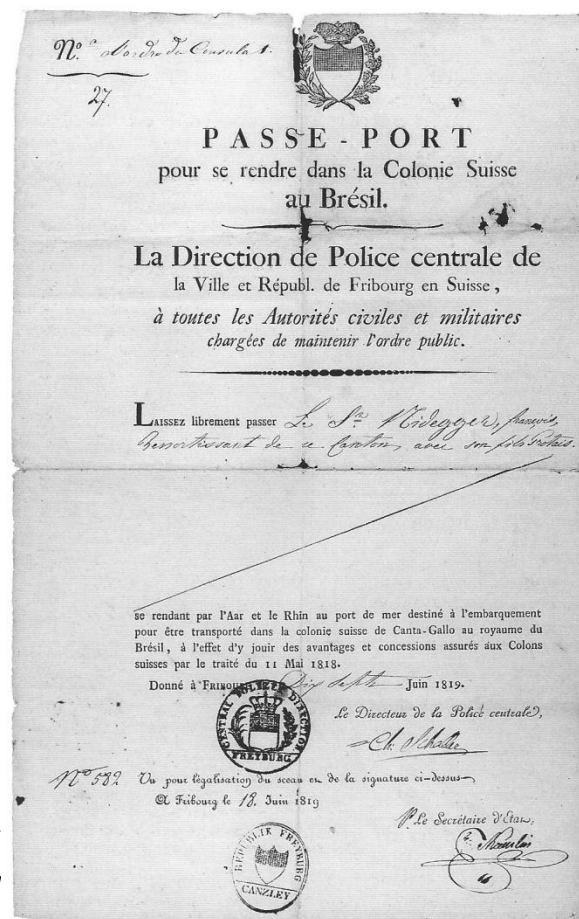 N.º d'ordre du Consulat.
27.
PASSE - PORT
pour se rendre dans la Colonie Suisse
au Brésil.
La Direction de Police centrale de
la Ville et Républ. de Fribourg en Suisse,
à toutes les Autorités civiles et militaires
chargées de maintenir l'ordre public.
LAISSEZ librement passer Le Sr. Nidegger, françois,
Ressortissant de ce Canton, avec son fils Protais.
se rendant par l'Aar et le Rhin au port de mer destiné à l'embarquement
pour être transporté dans la colonie suisse de Canta-Gallo au royaume du
Brésil, à l'effet d'y jouir des avantages et concessions assurés aux Colons
suisses par le traité du 11 Mai 1818.
Donné à FRIBOURG Dix Sept Juin 1819.
CENTRAL POLIZEY DIRECTION
FREYBURG
Le Directeur de la Police centrale,
Ch. Schaller
Nº 582 Vu pour légalisation du sceau et de la signature ci-dessus
A Fribourg le 18. Juin 1819
Le Secrétaire d'Etat,
REPUBLIK FREYBURG
CANZLEY